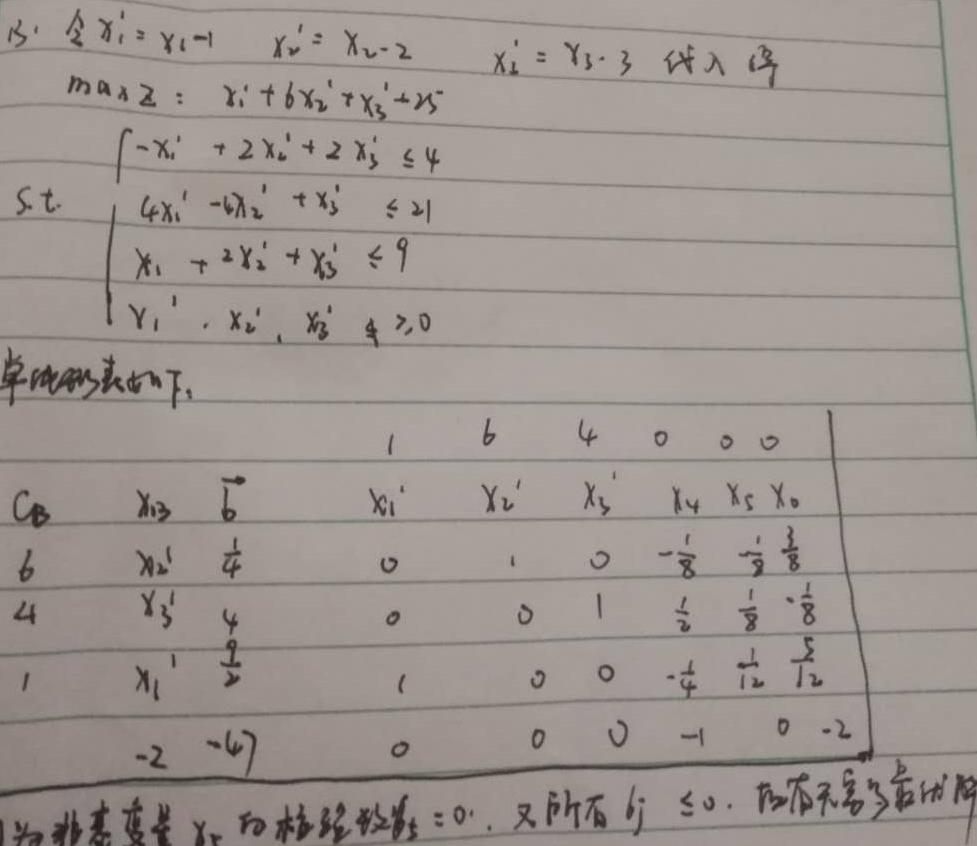 令 x₁' = x₁-1 x₂' = x₂-2 x₃' = x₃-3 代入得
max Z = x₁' + 6x₂' + x₃' + 25
-x₁' + 2x₂' + 2x₃' ≤ 4
s.t. 4x₁' -4x₂' + x₃' ≤ 21
x₁ + 2x₂' + x₃' ≤ 9
x₁', x₂', x₃' ≥ 0
单纯形表如下:
1 6 4 0 0 0
C_B X_B b x₁' x₂' x₃' x₄ x₅ x₆
6 x₂' 1/4 0 1 0 -1/8 -1/8 3/8
4 x₃' 4 0 0 1 1/2 1/8 -1/8
1 x₁' 9/2 1 0 0 -1/4 1/12 5/12
-Z -47 0 0 0 -1 0 -2
为非基变量 x₅ 的检验数 = 0. 又所有 ≤ 0. 故有无穷多最优解